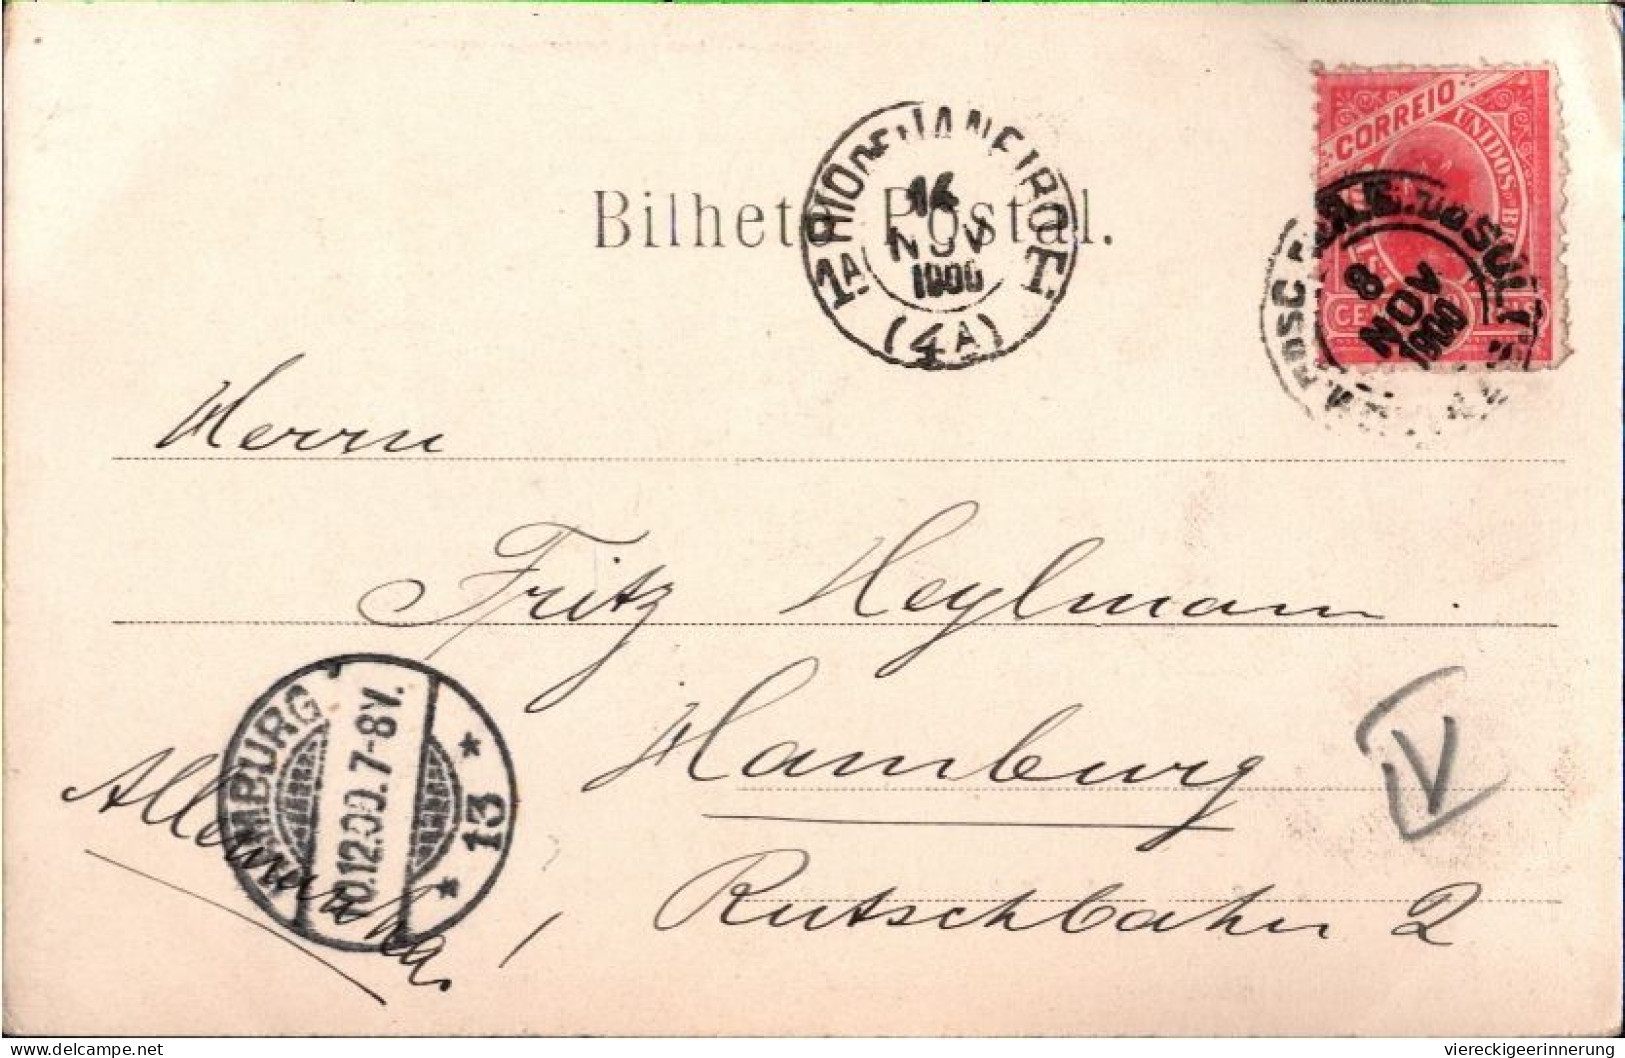 CORREIO
UNIDOS
RIO DE JANEIRO
14
NOV
1900
1ª T.
(4A)
Bilhete Postal.
8
NOV
1900
Herrn
Fritz Heylmann.
Hamburg
Rutschbahn 2
Allemanha.
HAMBURG
10.12.00.7-8V.
* 13 *
IV
viereckigeerinnerung
delcampe.net